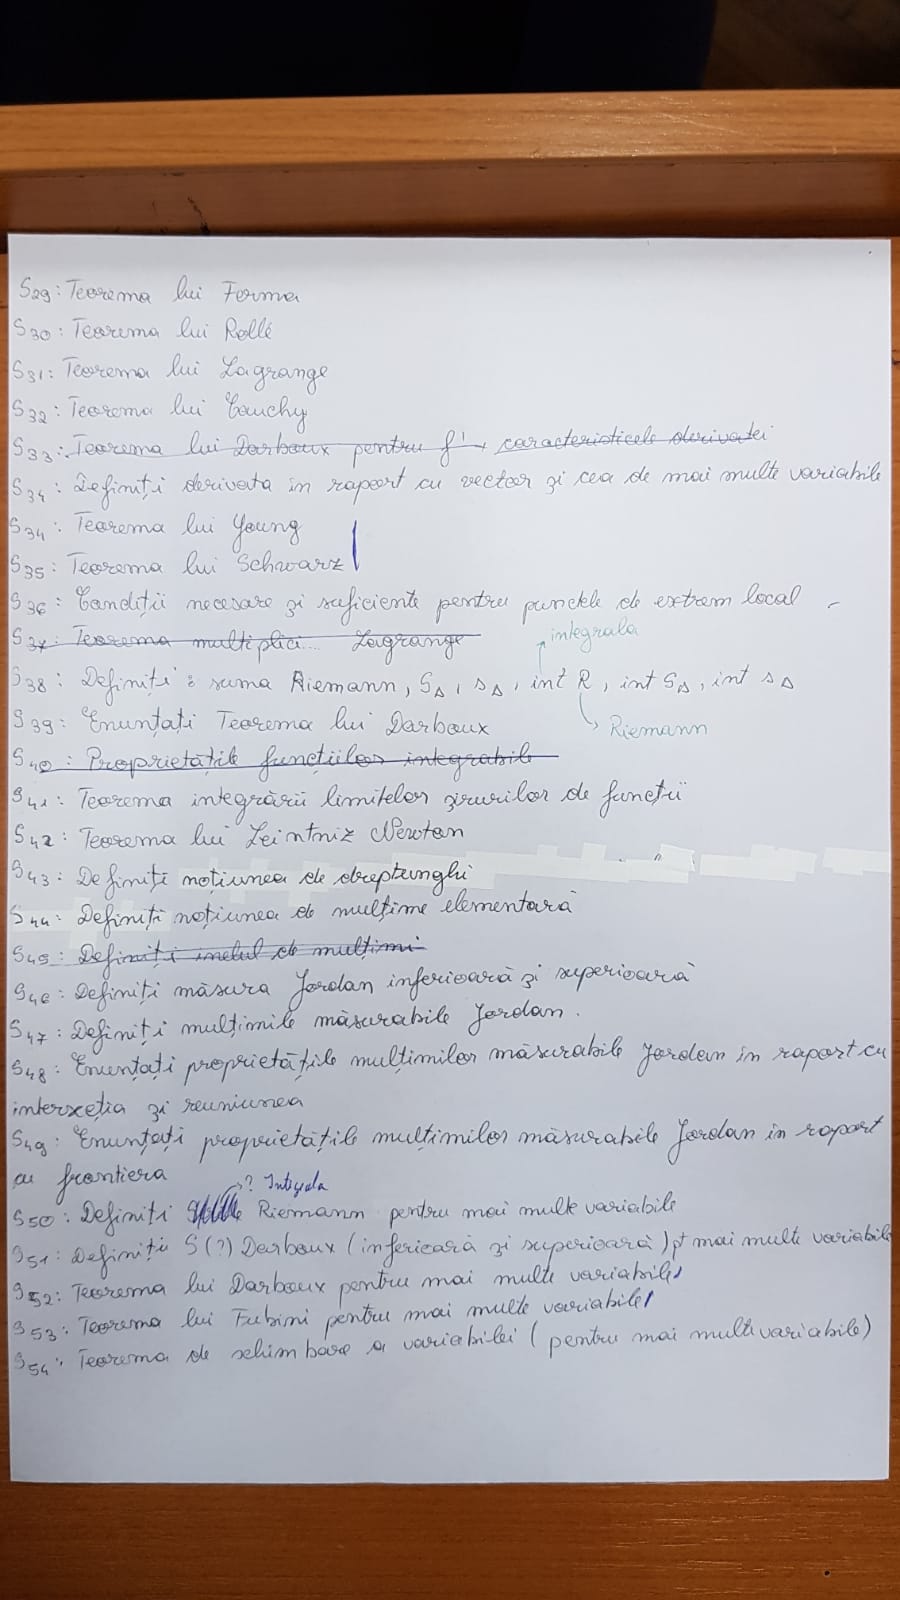 S29: Teorema lui Ferma
S30: Teorema lui Rolle
S31: Teorema lui Lagrange
S32: Teorema lui Cauchy
S33: Teorema lui Darboux pentru f' caracteristicele derivatei
S34: Definiți derivata in raport cu vector și cea de mai multe variabile
S34: Teorema lui Young
S35: Teorema lui Schwarz
S36: Condiții necesare și suficiente pentru punctele de extrem local
S37: Teorema multiplici.... Lagrange
integrala
S38: Definiți: suma Riemann, SΔ, sΔ, int R, int SΔ, int sΔ
S39: Enunțați Teorema lui Darboux
Riemann
S40: Proprietățile funcțiilor integrabile
S41: Teorema integrării limitelor șirurilor de funcții
S42: Teorema lui Leintniz Newton
S43: Definiți noțiunea de dreptunghi
S44: Definiți noțiunea de mulțime elementară
S45: Definiți inelul de mulțimi
S46: Definiți măsura Jordan inferioară și superioară
S47: Definiți mulțimile măsurabile Jordan.
S48: Enunțați proprietățile mulțimilor măsurabile Jordan in raport cu
interseția și reuniunea
S49: Enunțați proprietățile mulțimilor măsurabile Jordan in raport
cu frontiera
? Integrala
S50: Definiti Riemann pentru mai multe variabile
S51: Definiții S(?) Darboux (inferioară și superioară) pt mai multe variabile
S52: Teorema lui Darboux pentru mai multe variabile
S53: Teorema lui Fubini pentru mai multe variabile
S54: Teorema de schimbare a variabilei (pentru mai multi variabile)